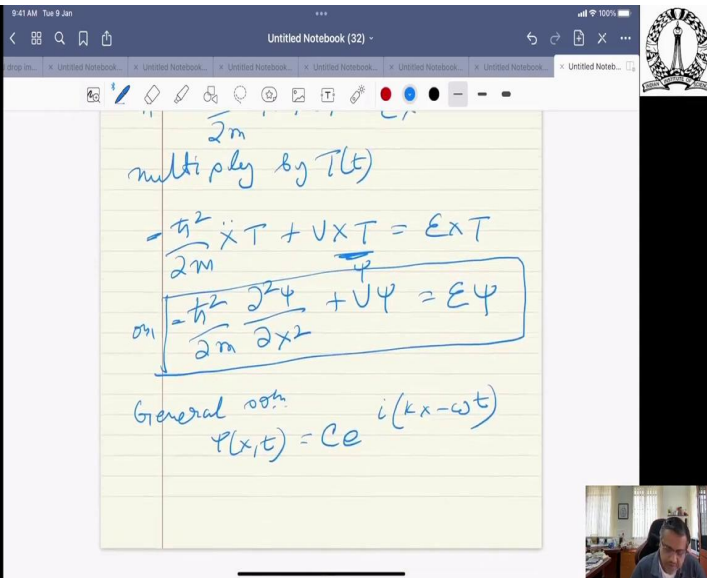 9:41 AM Tue 9 Jan
100%
Untitled Notebook (32)
drop im... × Untitled Notebook... × Untitled Notebook... × Untitled Notebook... × Untitled Notebook... × Untitled Notebook... × Untitled Notebook... × Untitled Noteb...
2m
multiply by T(t)
-ħ²/2m Ẍ T + V X T = Ɛ X T
ψ
or, -ħ²/2m ∂²ψ/∂x² + Vψ = Ɛψ
General soln.
ψ(x,t) = C e^{i(kx-ωt)}